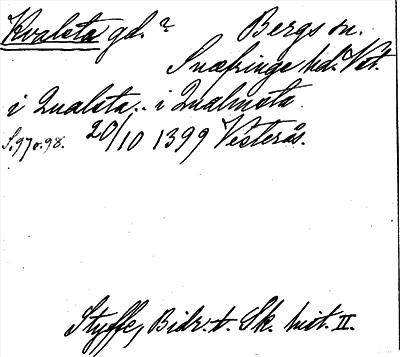 Kvalsta gd. ? Bergs sn.
Snæfringe hd. Vst.
i Qualsta .. i Qualmsta
S. 97 o. 98. 20/10 1399 Vesterås.
Styffe, Bidr. t. Sk. hist. II.